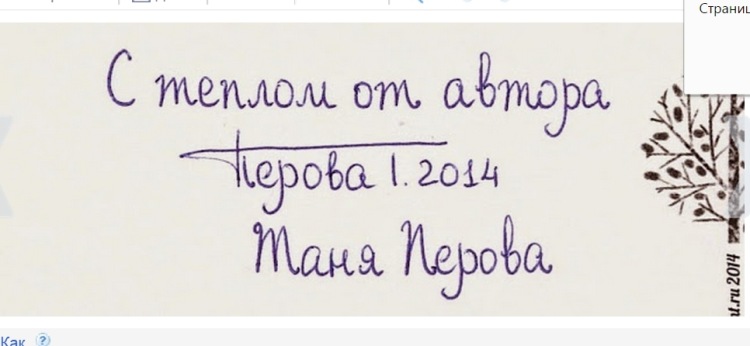 Страниц
С теплом от автора
Перова I. 2014
Таня Перова
nt.ru 2014
Как